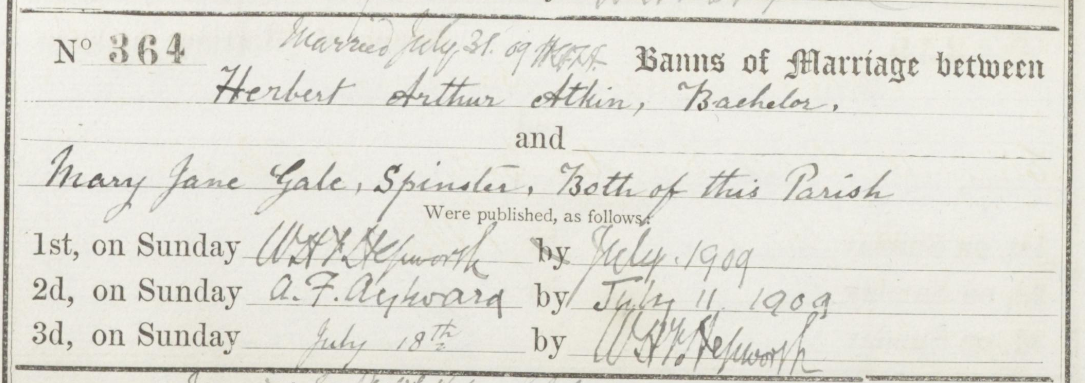 Nº 364 Married July 31. 09 Banns of Marriage between
Herbert Arthur Atkin, Bachelor.
and
Mary Jane Gale, Spinster, Both of this Parish
Were published, as follows:
1st, on Sunday W.H.F. Hepworth by July. 1909
2d, on Sunday A. F. Aylward by July 11 1909
3d, on Sunday July 18th by W.H.F. Hepworth